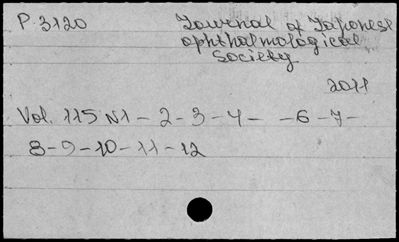 P. 3120 Journal of Japonese
ophthalmological
Society
2011
Vol. 115 N1 - 2 - 3 - 4 - - 6 - 7 -
8 - 9 - 10 - 11 - 12